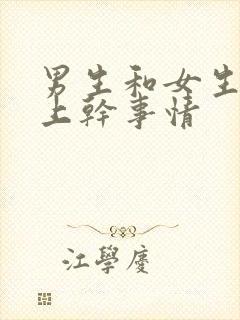 男生和女生
上幹事情
江學慶